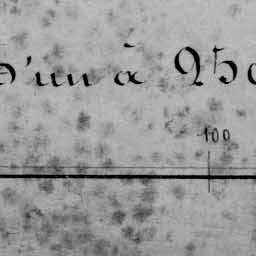 D'un à 250
100